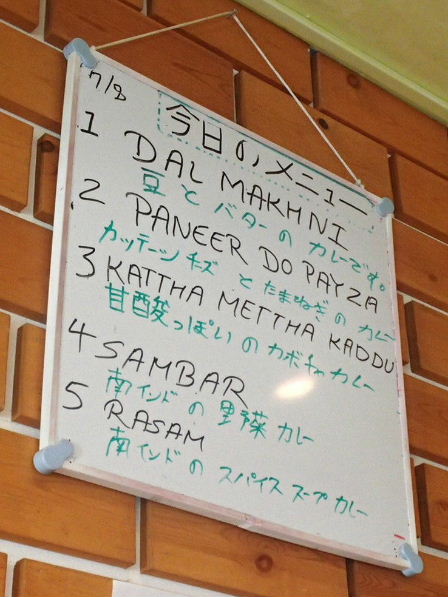 7/8
今日のメニュー
1 DAL MAKHNI
豆とバターのカレーです。
2 PANEER DO PAYZA
カッテージチーズとたまねぎのカレー
3 KATTHA METTHA KADDU
甘酸っぱいのカボチャカレー
4 SAMBAR
南インドの野菜カレー
5 RASAM
南インドのスパイススープカレー